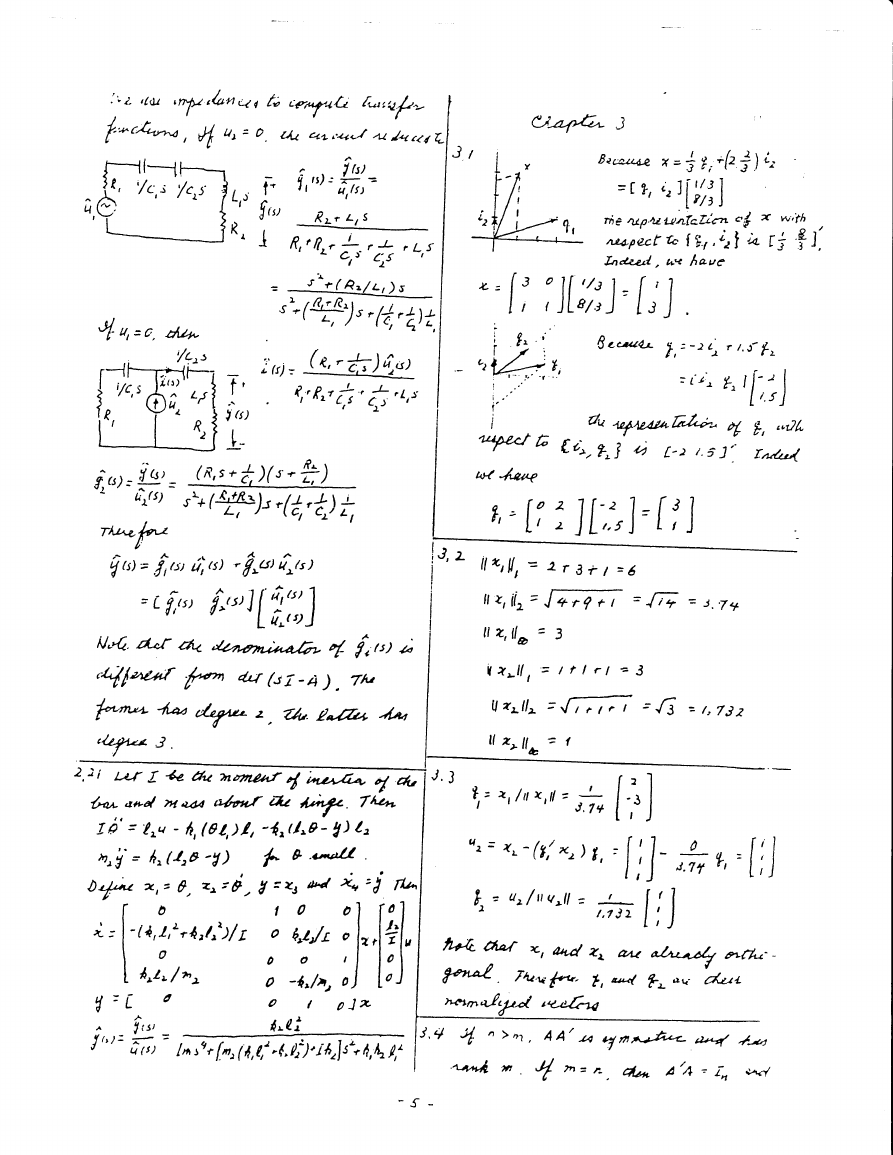 We use impedances to compute transfer
functions, If u₂ = 0, the circuit reduces to
R₁ 1/C₁s 1/C₂s L₁s R₂ û₁ ŷ(s) + -
ĝ₁(s) = ŷ(s)/û₁(s) =
(R₂ + L₁s)/(R₁ + R₂ + 1/(C₁s) + 1/(C₂s) + L₁s)
= (s² + (R₂/L₁)s)/(s² + ((R₁+R₂)/L₁)s + (1/C₁ + 1/C₂)1/L₁)
If u₁ = 0, then
1/C₁s 1/C₂s î(s) L₁s R₁ û₂ R₂ ŷ(s) + -
î(s) = (R₁ + 1/(C₁s))û₂(s)/(R₁ + R₂ + 1/(C₁s) + 1/(C₂s) + L₁s)
ĝ₂(s) = ŷ(s)/û₂(s) = (R₁s + 1/C₁)(s + R₂/L₁)/(s² + ((R₁+R₂)/L₁)s + (1/C₁ + 1/C₂)1/L₁)
Therefore
ŷ(s) = ĝ₁(s) û₁(s) + ĝ₂(s) û₂(s)
= [ĝ₁(s) ĝ₂(s)] [û₁(s); û₂(s)]
Note that the denominator of ĝᵢ(s) is
different from det (sI-A). The
former has degree 2, the latter has
degree 3.
2.21 Let I be the moment of inertia of the
bar and mass about the hinge. Then
Iθ̈ = l₂u - k₁(θl₁)l₁ - k₂(l₂θ-y)l₂
m₂ÿ = k₂(l₂θ-y) for θ small.
Define x₁ = θ, x₂ = θ̇, y = x₃ and ẋ₄ = ẏ Then
ẋ = [0 1 0 0; -(k₁l₁²+k₂l₂²)/I 0 k₂l₂/I 0; 0 0 0 1; k₂l₂/m₂ 0 -k₂/m₂ 0] x + [0; l₂/I; 0; 0] u
y = [ 0 0 1 0 ] x
ĝ(s) = ŷ(s)/û(s) = k₂l₂²/(Ims⁴+[m₂(k₁l₁²+k₂l₂²)+Ik₂]s²+k₁k₂l₁²
Chapter 3
3.1
x i₂ q₁
Because x = 1/3 q₁ + (2 2/3) i₂
= [q₁ i₂] [1/3; 8/3]
The representation of x with
respect to {q₁, i₂} is [1/3 8/3]'.
Indeed, we have
x = [3 0; 1 1] [1/3; 8/3] = [1; 3].
q₂ i₂ q₁
Because q₁ = -2i₂ + 1.5q₂
= [i₂ q₂] [-2; 1.5]
the representation of q₁ with
respect to {i₂, q₂} is [-2 1.5]'. Indeed
we have
q₁ = [0 2; 1 2] [-2; 1.5] = [3; 1]
3.2 ||x₁||₁ = 2+3+1 = 6
||x₁||₂ = √(4+9+1) = √14 = 3.74
||x₁||∞ = 3
||x₂||₁ = 1+1+1 = 3
||x₂||₂ = √(1+1+1) = √3 = 1.732
||x₂||∞ = 1
3.3
q₁ = x₁/||x₁|| = 1/3.74 [2; -3; 1]
u₂ = x₂ - (q₁'x₂) q₁ = [1; 1; 1] - 0/3.74 q₁ = [1; 1; 1]
q₂ = u₂/||u₂|| = 1/1.732 [1; 1; 1]
Note that x₁ and x₂ are already ortho-
gonal. Therefore q₁ and q₂ are their
normalized vectors
3.4 If n > m, AA' is symmetric and has
rank m. If m = n, then A'A = Iₙ and
- 5 -